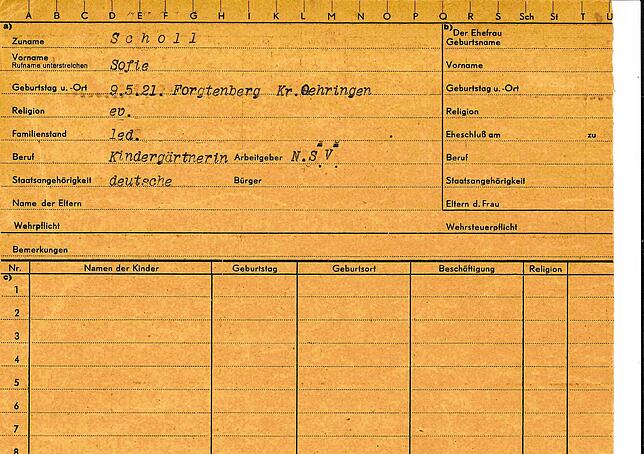 A B C D E F G H I K L M N O P Q R S Sch St T U
a)
Zuname S c h o l l
Vorname
Rufname unterstreichen Sofie
Geburtstag u. -Ort 9.5.21. Forgtenberg Kr.Oehringen
Religion ev.
Familienstand led.
Beruf Kindergärtnerin Arbeitgeber N.S.V.
Staatsangehörigkeit deutsche Bürger
Name der Eltern
Wehrpflicht
Bemerkungen
b) Der Ehefrau
Geburtsname
Vorname
Geburtstag u. -Ort
Religion
Eheschluß am zu
Beruf
Staatsangehörigkeit
Eltern d. Frau
Wehrsteuerpflicht
Nr. Namen der Kinder Geburtstag Geburtsort Beschäftigung Religion
c)
1
2
3
4
5
6
7
8